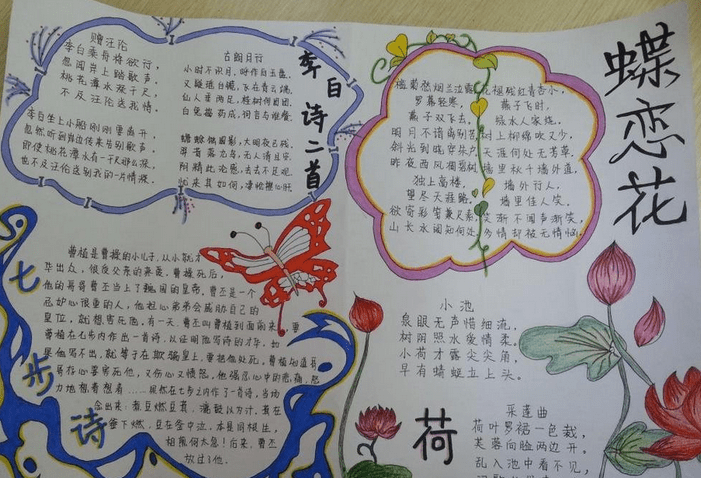 赠汪伦
李白乘舟将欲行，
忽闻岸上踏歌声。
桃花潭水深千尺，
不及汪伦送我情。
李白坐上小船刚刚要离开，
忽然听到岸边传来告别歌声。
即使桃花潭水有一千尺那么深，
也不及汪伦送别我的一片情深。
古朗月行
小时不识月，呼作白玉盘。
又疑瑶台镜，飞在青云端。
仙人垂两足，桂树何团团。
白兔捣药成，问言与谁餐。
蟾蜍蚀圆影，大明夜已残。
羿昔落九乌，天人清且安。
阴精此沦惑，去去不足观。
忧来其如何，凄怆摧心肝
李白诗二首
蝶恋花
槛菊愁烟兰泣露
罗幕轻寒，
燕子双飞去。
明月不谙离别苦
斜光到晓穿朱户
昨夜西风凋碧树
独上高楼，
望尽天涯路。
欲寄彩笺兼尺素
山长水阔知何处
花褪残红青杏小，
燕子飞时，
绿水人家绕。
枝上柳绵吹又少，
天涯何处无芳草。
墙里秋千墙外道，
墙外行人，
墙里佳人笑。
笑渐不闻声渐笑，
多情却被无情恼
七步诗
曹植是曹操的小儿子，从小就才
华出众，很受父亲的亲爱。曹操死后，
他的哥哥曹丕当上了魏国的皇帝，曹丕是一个
忌妒心很重的人，他担心弟弟会威胁自己的
皇位，就想害死他。有一天，曹丕叫曹植到面前来，要
曹植在七步内作出一首诗，以证明他写诗的才华。如
是他写不出，就等于在欺骗皇上，要把他处死。曹植知道哥
哥存心要害死他，又伤心又愤怒。他强忍心中的悲痛，努
力地想着想着……果然在七步之内作了一首诗，当场
念出来：煮豆燃豆萁，漉豉以为汁，萁在
釜下燃，豆在釜中泣，本是同根生，
相煎何太急！后来，曹丕
放过了他。
小池
泉眼无声惜细流，
树阴照水爱情柔。
小荷才露尖尖角，
早有蜻蜓立上头。
荷
采莲曲
荷叶罗裙一色裁，
芙蓉向脸两边开。
乱入池中看不见，